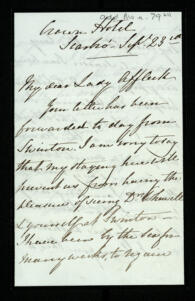 Crown Hotel
Scarbro' Septr 23rd
My dear Lady Affleck
Your letter has been
forwarded to day from
Swinton. I am sorry today
that my staying here will
prevent us from having the
pleasure of seeing Dr Whewell
& yourself at Swinton -
I have been by the sea for
many weeks, to regain